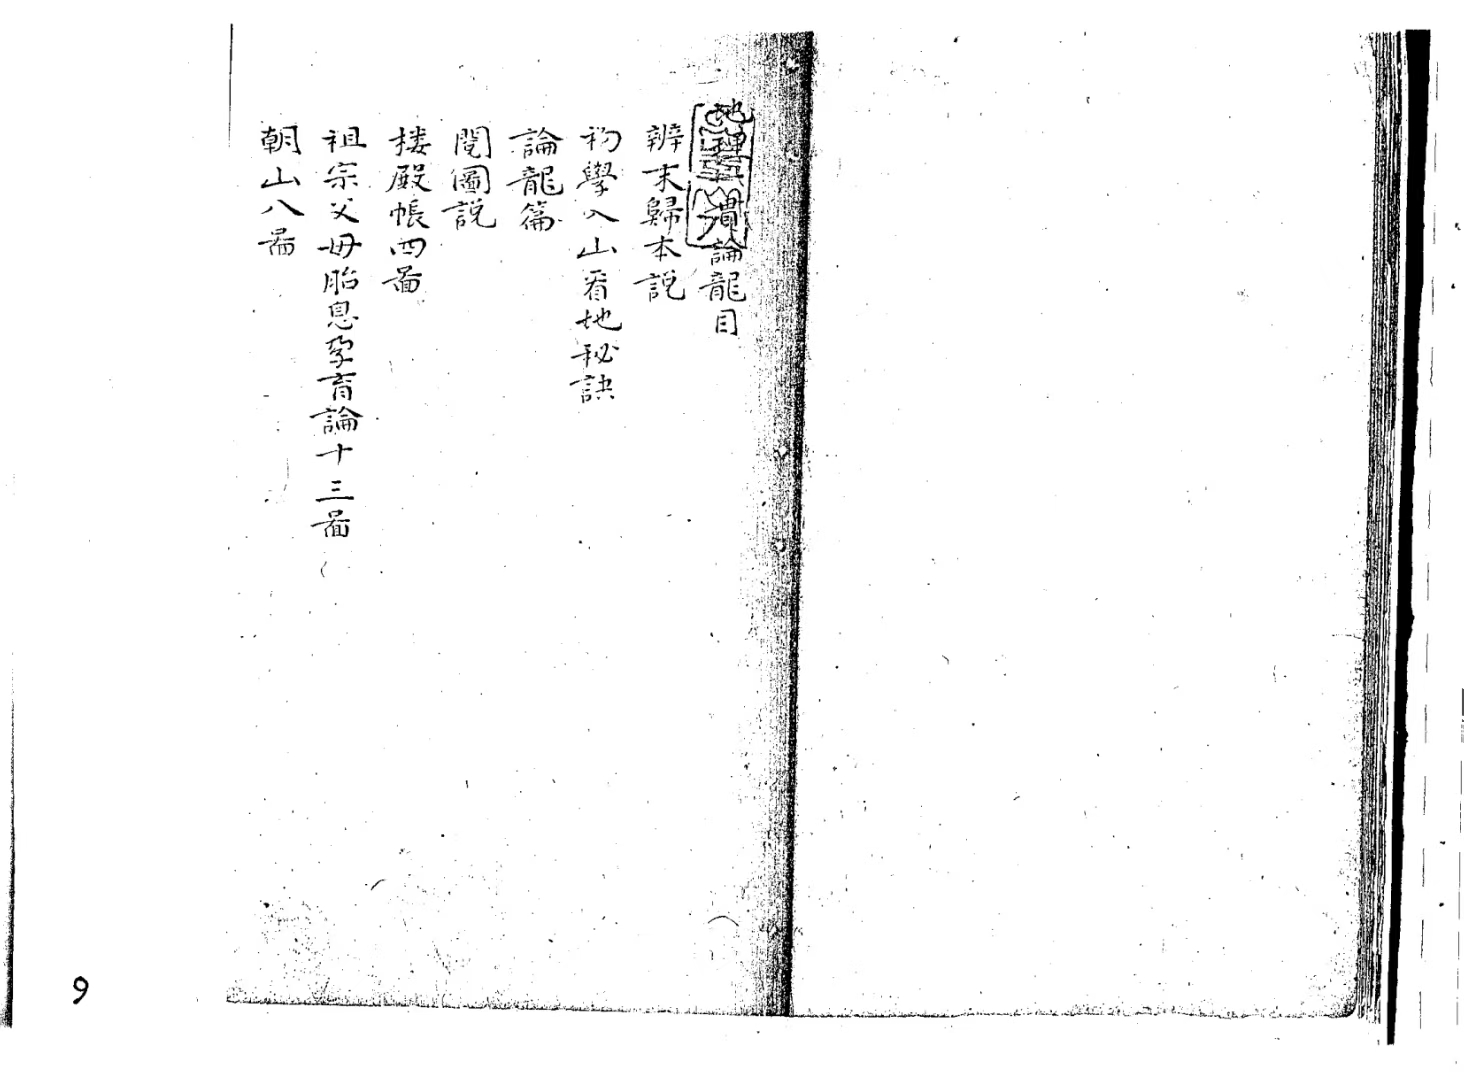 地理五貫論龍目
辨末歸本說
初學入山看地秘訣
論龍篇
閱圖說
楼殿帳四啚
祖宗父母胎息孕育論十三啚
朝山八啚
9